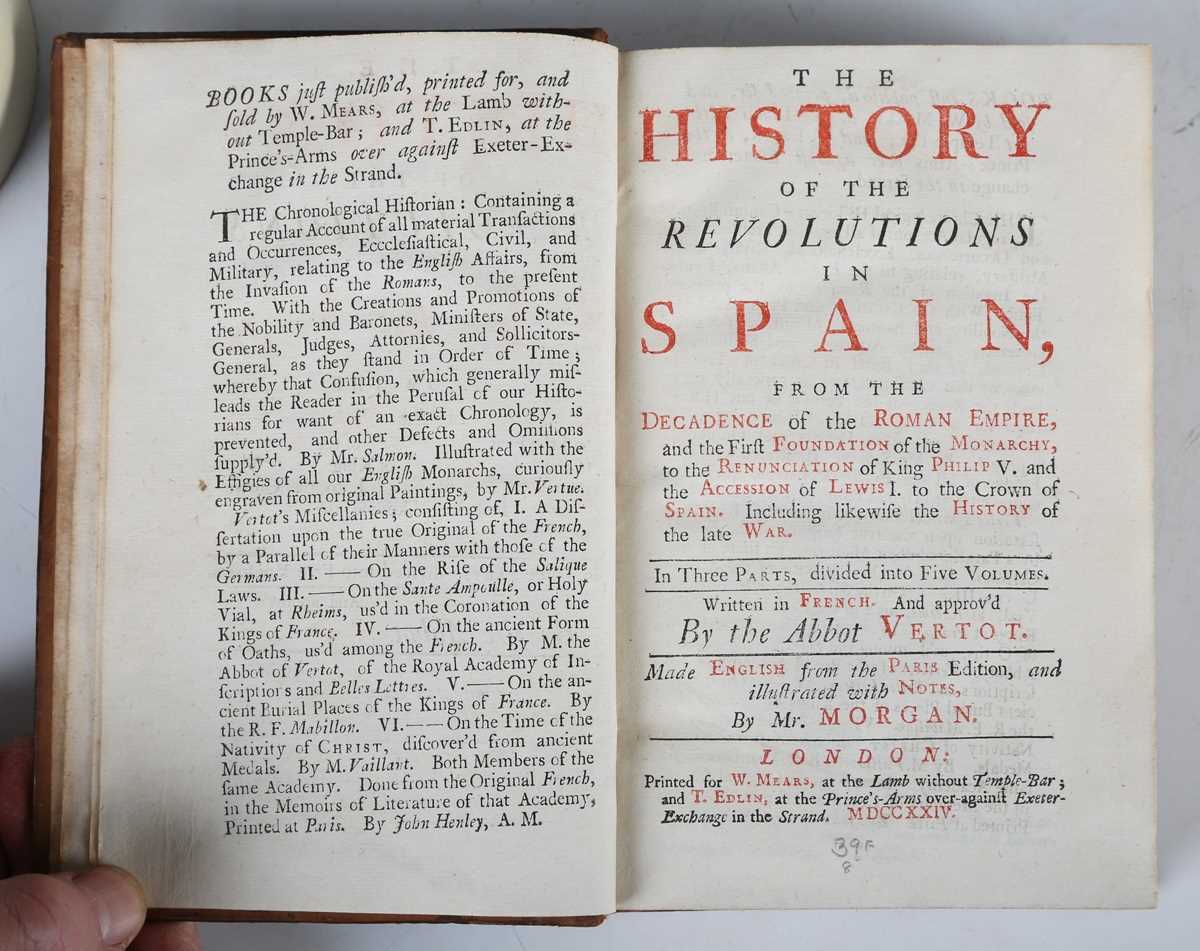 BOOKS juſt publiſh'd, printed for, and
ſold by W. MEARS, at the Lamb with-
out Temple-Bar; and T. EDLIN, at the
Prince's-Arms over againſt Exeter-Ex-
change in the Strand.
THE Chronological Hiſtorian: Containing a
regular Account of all material Tranſactions
and Occurrences, Eccleſiaſtical, Civil, and
Military, relating to the Engliſh Affairs, from
the Invaſion of the Romans, to the preſent
Time. With the Creations and Promotions of
the Nobility and Baronets, Miniſters of State,
Generals, Judges, Attornies, and Sollicitors-
General, as they ſtand in Order of Time;
whereby that Confuſion, which generally miſ-
leads the Reader in the Peruſal of our Hiſto-
rians for want of an exact Chronology, is
prevented, and other Defects and Omiſſions
ſupply'd. By Mr. Salmon. Illuſtrated with the
Effigies of all our Engliſh Monarchs, curiouſly
engraven from original Paintings, by Mr. Vertue.
Vertot's Miſcellanies; conſiſting of, I. A Diſ-
ſertation upon the true Original of the French,
by a Parallel of their Manners with thoſe of the
Germans. II. —— On the Riſe of the Salique
Laws. III. —— On the Sante Ampoulle, or Holy
Vial, at Rheims, us'd in the Coronation of the
Kings of France. IV. —— On the ancient Form
of Oaths, us'd among the French. By M. the
Abbot of Vertot, of the Royal Academy of In-
ſcriptions and Belles Lettres. V. —— On the an-
cient Burial Places of the Kings of France. By
the R. F. Mabillon. VI. —— On the Time of the
Nativity of CHRIST, diſcover'd from ancient
Medals. By M. Vaillant. Both Members of the
ſame Academy. Done from the Original French,
in the Memoirs of Literature of that Academy,
Printed at Paris. By John Henley, A. M.
THE
HISTORY
OF THE
REVOLUTIONS
IN
SPAIN,
FROM THE
DECADENCE of the ROMAN EMPIRE,
and the Firſt FOUNDATION of the MONARCHY,
to the RENUNCIATION of King PHILIP V. and
the ACCESSION of LEWIS I. to the Crown of
SPAIN. Including likewiſe the HISTORY of
the late WAR.
In Three PARTS, divided into Five VOLUMES.
Written in FRENCH. And approv'd
By the Abbot VERTOT.
Made ENGLISH from the PARIS Edition, and
illuſtrated with NOTES,
By Mr. MORGAN.
LONDON:
Printed for W. MEARS, at the Lamb without Temple-Bar;
and T. EDLIN, at the Prince's-Arms over-againſt Exeter-
Exchange in the Strand. MDCCXXIV.
8